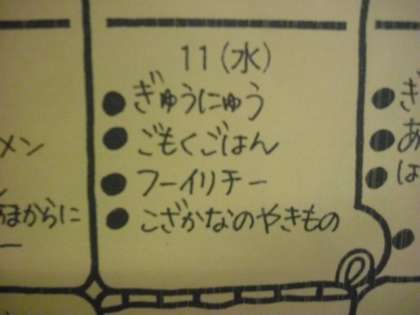 11(水)
●ぎゅうにゅう
●ごもくごはん
●フーイリチー
●こざかなのやきもの
メン
からに
ー
●ぎ
●あ
●は
●